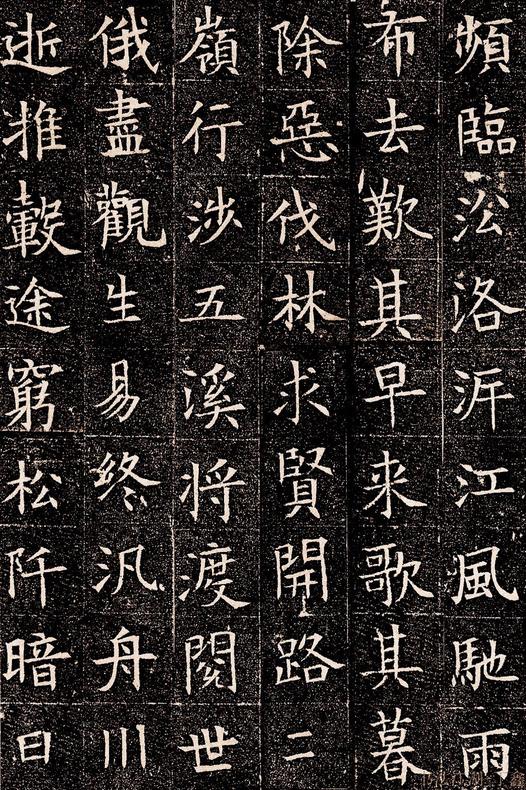 頻臨沇洛泝江風馳雨
布去歎其早来歌其暮
除惡伐林求賢開路二
嶺行涉五溪将渡閱世
俄盡觀生易終汎舟川
逝推轂途窮松阡暗日